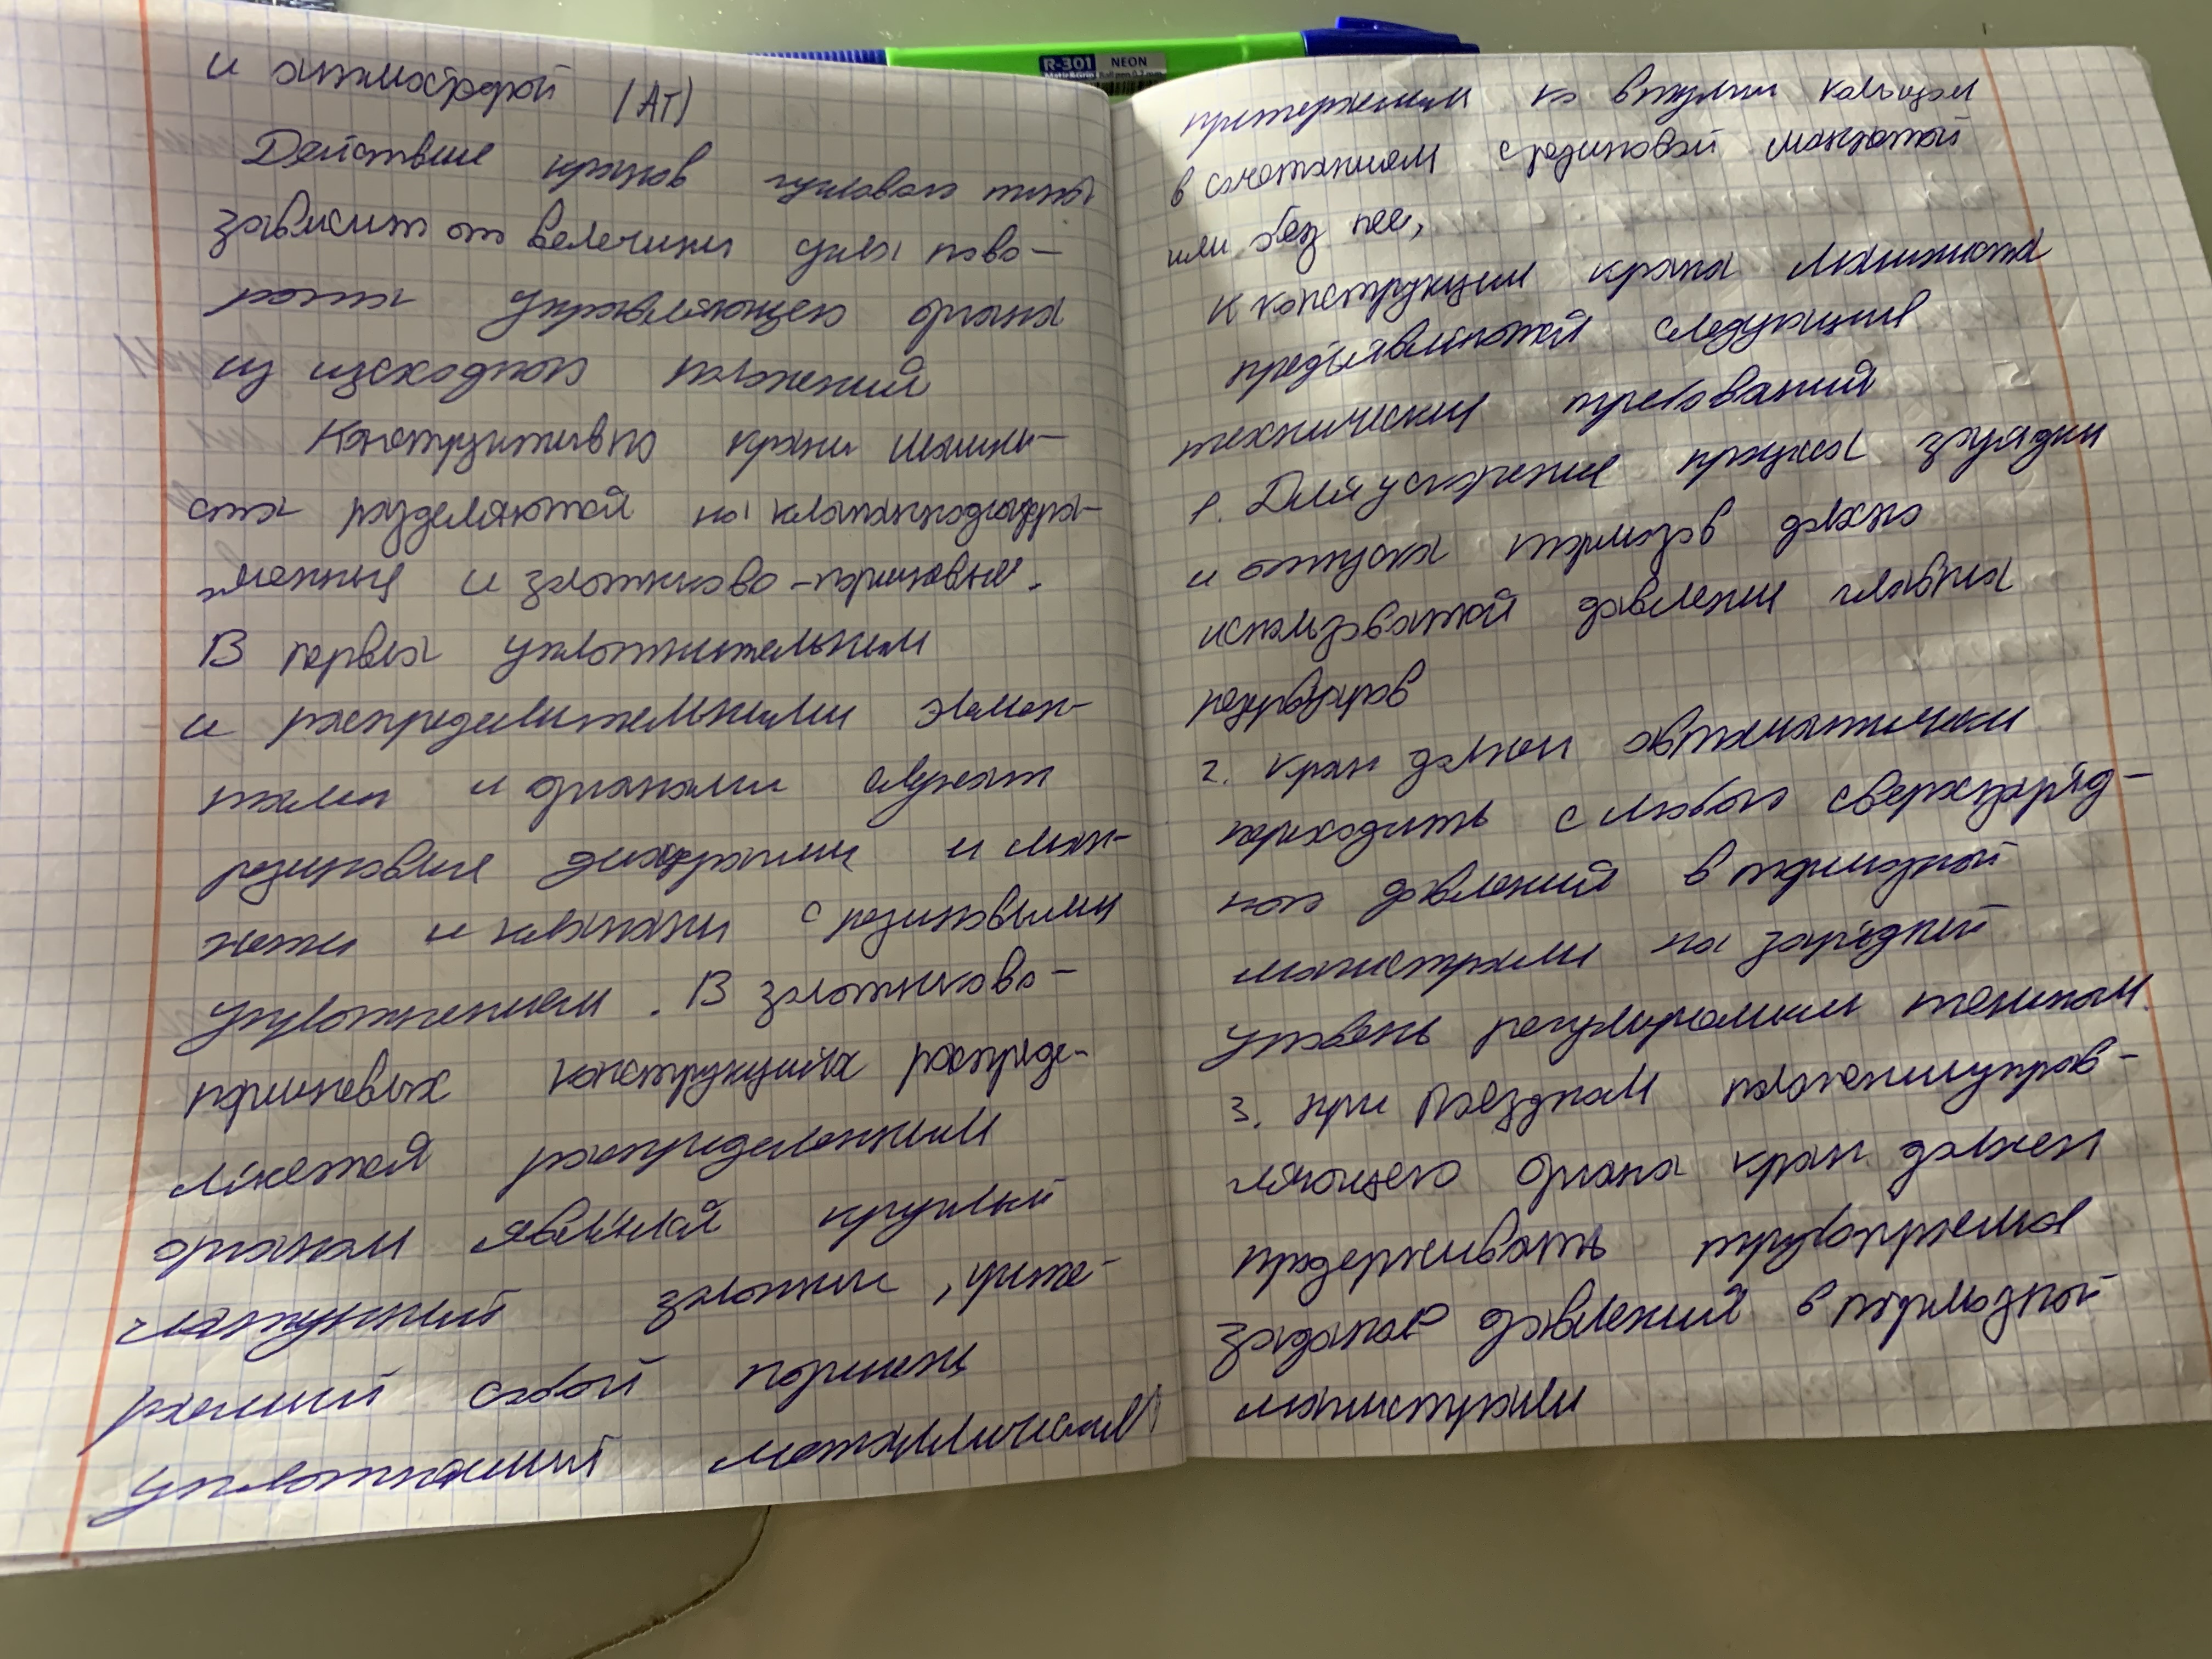 и атмосферой (АТ)
Действие кранов углового типа
зависит от величини угла пово-
рота управляющего органа
из исходного положений
Конструктивно крани машини-
ста разделяютсй на клапаннодиафра-
гменные и золотниково-поршневые.
В первых уплотнительним
и распределительними элемен-
тами и органами служат
резиновые диафрагми и ман-
жети и клапани с резиновыми
уплотнением. В золотниково-
поршневых конструкцийх распреде-
распределенним
органом является круглый
латунний золотник,
собой поршень
уплотнений металлическим
R-301 NEON
притертым ко втулки кольцом
в сочетанием с резиновой манжетой
или без нее,
К конструкции крана машиниста
предъявляютсй следующие
технически требований
1. Для ускорение процесса зарядки
и отпуска тормозов должно
использоватсй давлении главних
резервуаров
2. Кран должен автоматически
переходить с любого сверхзаряд-
ного давлений в тормозной
магистрали на зарядний
уровень регулируемим темпом.
3. При поездном положении управ-
ляющего органа кран должен
заданое давлений в тормозной
магистрали